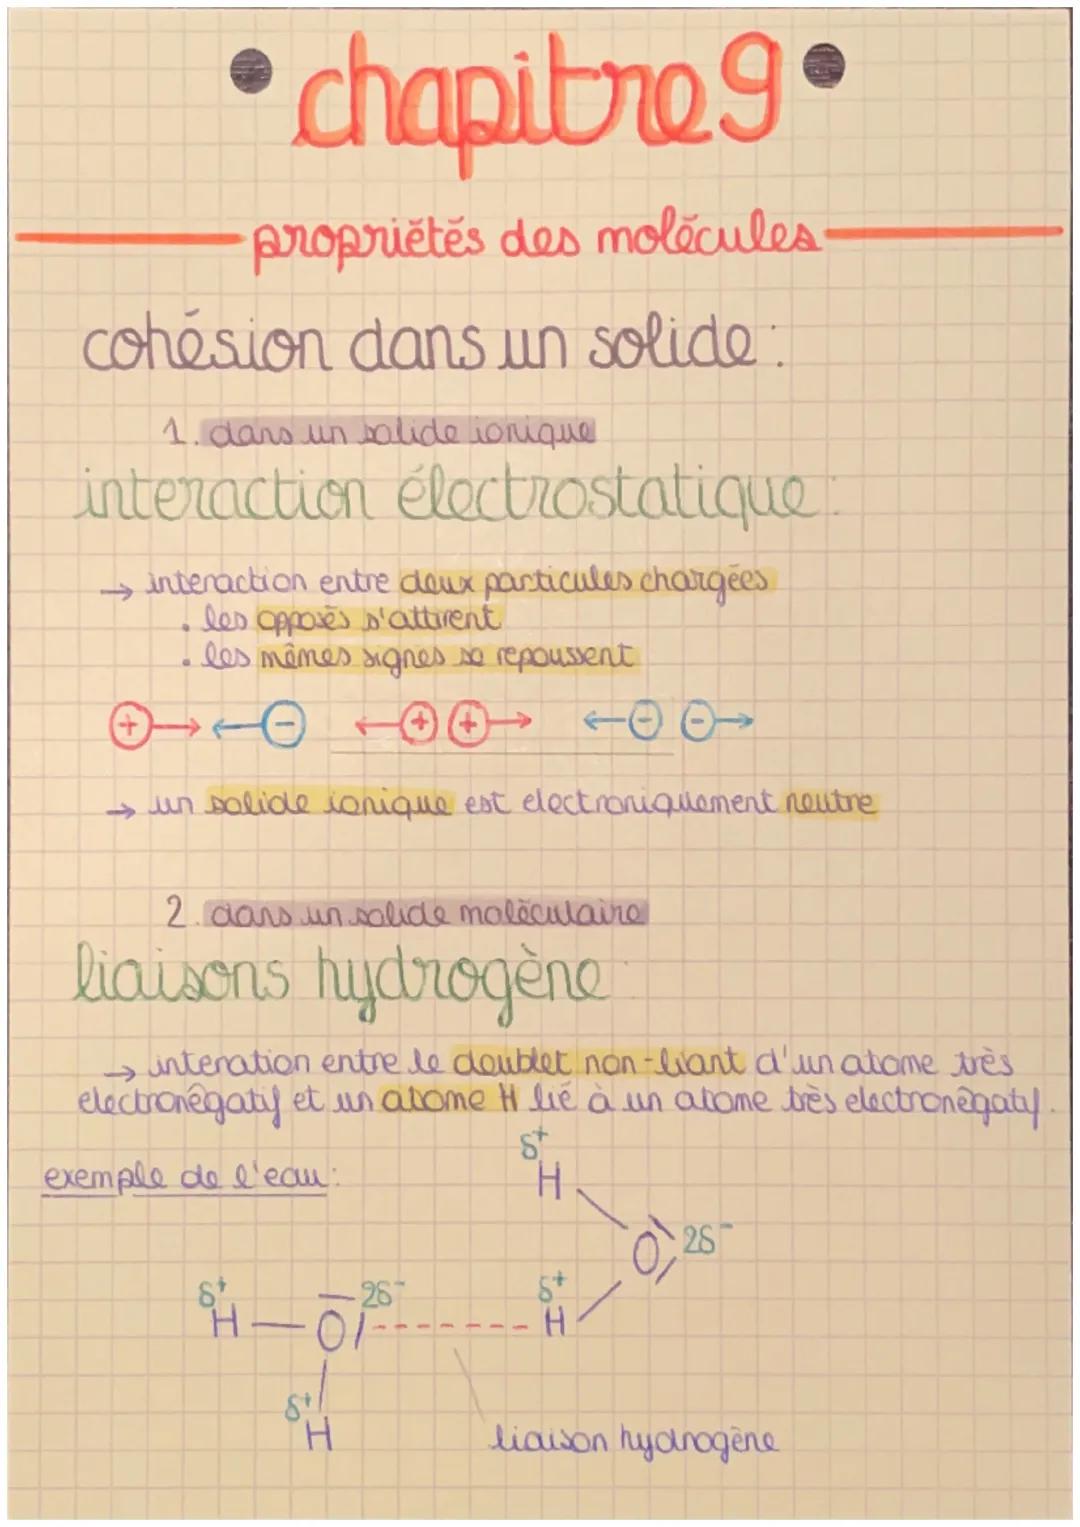 chapitre 9
propriétés des molécules
cohésion dans un solide :
1. dans un solide ionique
interaction électrostatique :
→ interaction entre deux particules chargées
• les opposés s'attirent
• les mêmes signes se repoussent
+ → ← - ← + + → ← - - →
→ un solide ionique est electroniquement neutre
2. dans un solide moléculaire
liaisons hydrogène
→ interation entre le doublet non-liant d'un atome très
electronégatif et un atome H lié à un atome très electronégatif.
exemple de l'eau :
δ+
H
O 2δ-
δ+ 2δ- δ+
H — O ------- H
δ+
H
liaison hydrogène